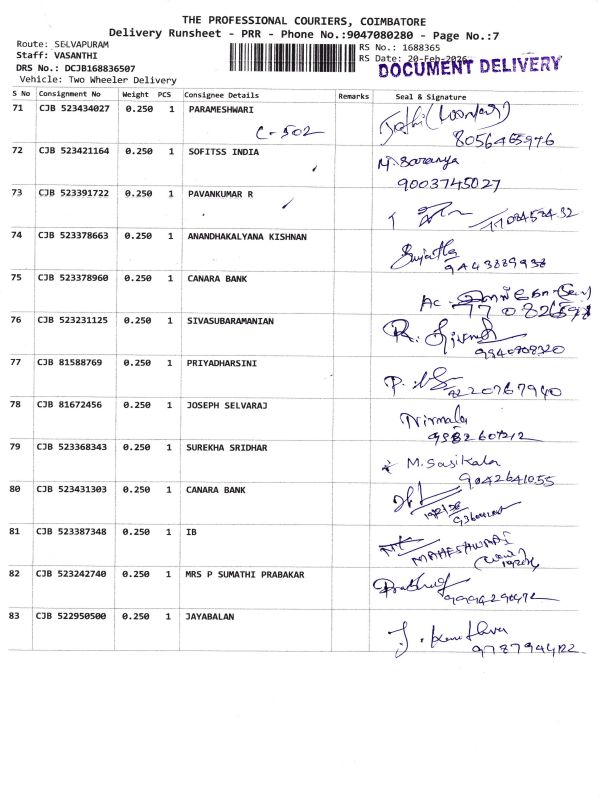 THE PROFESSIONAL COURIERS, COIMBATORE
Delivery Runsheet - PRR - Phone No.:9047080280 - Page No.:7
Route: SELVAPURAM
RS No.: 1688365
Staff: VASANTHI
RS Date: 20-Feb-2026
DOCUMENT DELIVERY
DRS No.: DCJB168836507
Vehicle: Two Wheeler Delivery
S No Consignment No Weight PCS Consignee Details Remarks Seal & Signature
71 CJB 523434027 0.250 1 PARAMESHWARI
C-502
8056465976
72 CJB 523421164 0.250 1 SOFITSS INDIA
M. Saranya
9003745027
73 CJB 523391722 0.250 1 PAVANKUMAR R
74 CJB 523378663 0.250 1 ANANDHAKALYANA KISHNAN
Sujatha
75 CJB 523378960 0.250 1 CANARA BANK
76 CJB 523231125 0.250 1 SIVASUBARAMANIAN
77 CJB 81588769 0.250 1 PRIYADHARSINI
78 CJB 81672456 0.250 1 JOSEPH SELVARAJ
Nirmala
79 CJB 523368343 0.250 1 SUREKHA SRIDHAR
M. Sasikala
9042641055
80 CJB 523431303 0.250 1 CANARA BANK
81 CJB 523387348 0.250 1 IB
MAHESHWARI
82 CJB 523242740 0.250 1 MRS P SUMATHI PRABAKAR
83 CJB 522950500 0.250 1 JAYABALAN